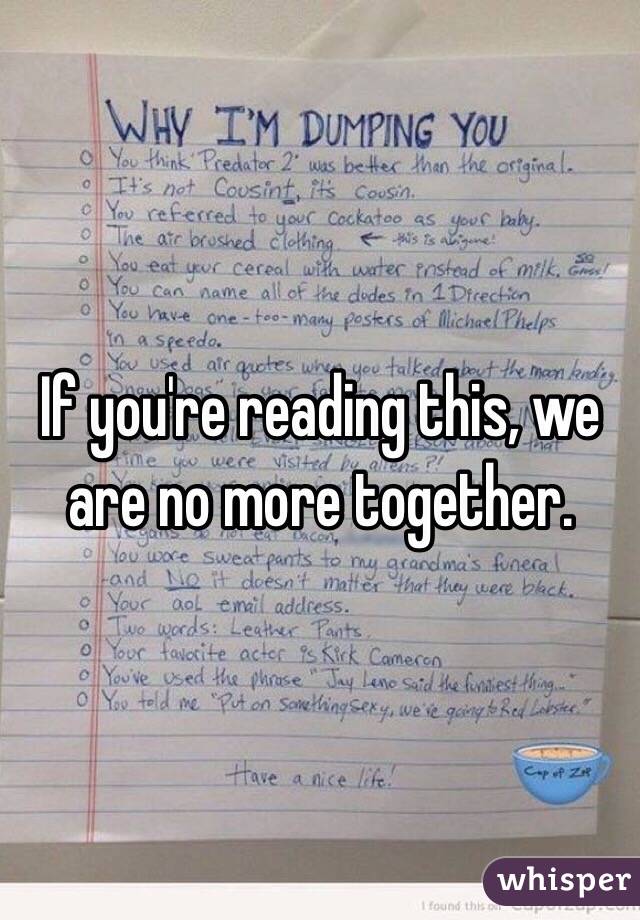 WHY I'M DUMPING YOU
You think "Predator 2" was better than the original.
It's not Cousint, it's cousin.
You referred to your cockatoo as your baby.
The air brushed clothing. ← this is a biggone!
You eat your cereal with water instead of milk. SO Gross!
You can name all of the dudes in 1 Direction
You have one-too-many posters of Michael Phelps
in a speedo.
You used air quotes when you talked about the moon landing.
"Snow Dogs" is your
If you're reading this, we
about that
time you were visited by aliens?!
are no more together.
Vegans do not eat bacon.
You wore sweatpants to my grandma's funeral
-and NO it doesn't matter that they were black.
Your aol email address.
Two words: Leather Pants.
Your favorite actor is Kirk Cameron
You've used the phrase "Jay Leno said the funniest thing..."
You told me "Put on something sexy, we're going to Red Lobster."
Have a nice life!
Cup of Zup
whisper
I found this on CupofZup.com